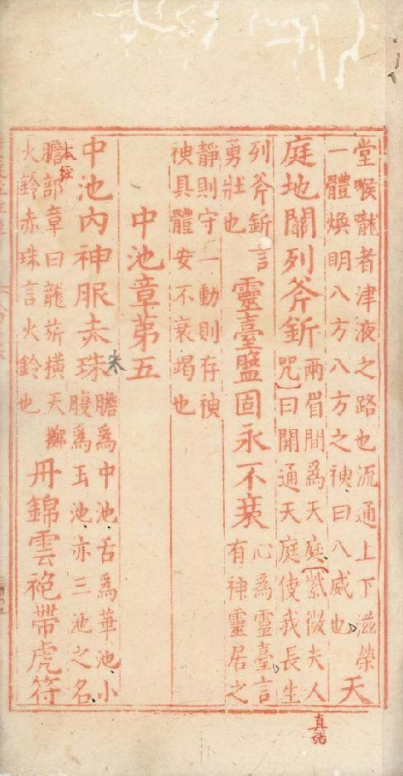 堂喉嚨者津液之路也流通上下滋榮
一體煥明八方八方之神曰八威也
天
庭地關列斧斨
兩眉間爲天庭(紫微夫人
咒)曰開通天庭使我長生
列斧斨言
勇壯也
靈臺盤固永不衰
心爲靈臺言
有神靈居之
靜則守一動則存神
神具體安不衰竭也
中池章第五
中池内神服赤珠
朱
膽爲中池舌爲華池小
腹爲玉池亦三池之名
本經
膽部章曰龍旂橫天擲
火鈴赤珠言火鈴也
丹錦雲袍帶虎符
真誥